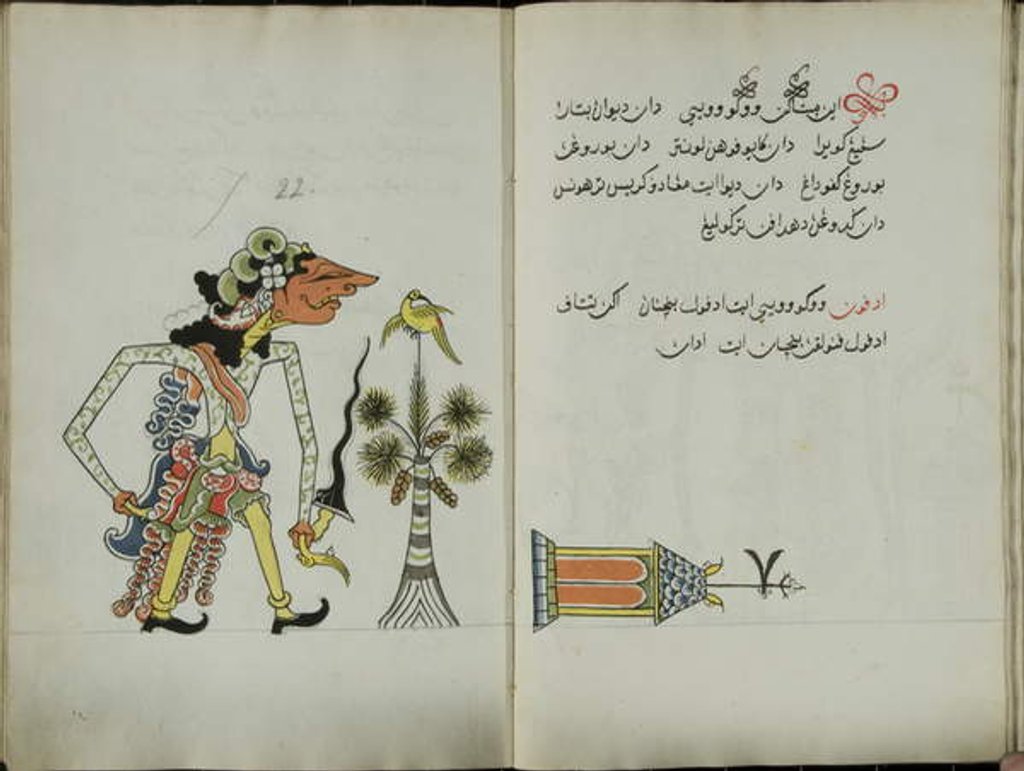 22.
اين مپتاکن ووکو وويي دان ديوان بتارا
سڠيڠ کويرا دان کايو فوهن لونتر دان بوروڠن
بوروڠ دان ديوا ايت کريس ترهونس
دان کدوڠن دهدافن ترکوليڠ
ادفون ووکو وويي ايت ادفول بنچنان اکن تتاف
ادفول فنولقن بنچان ايت ادان